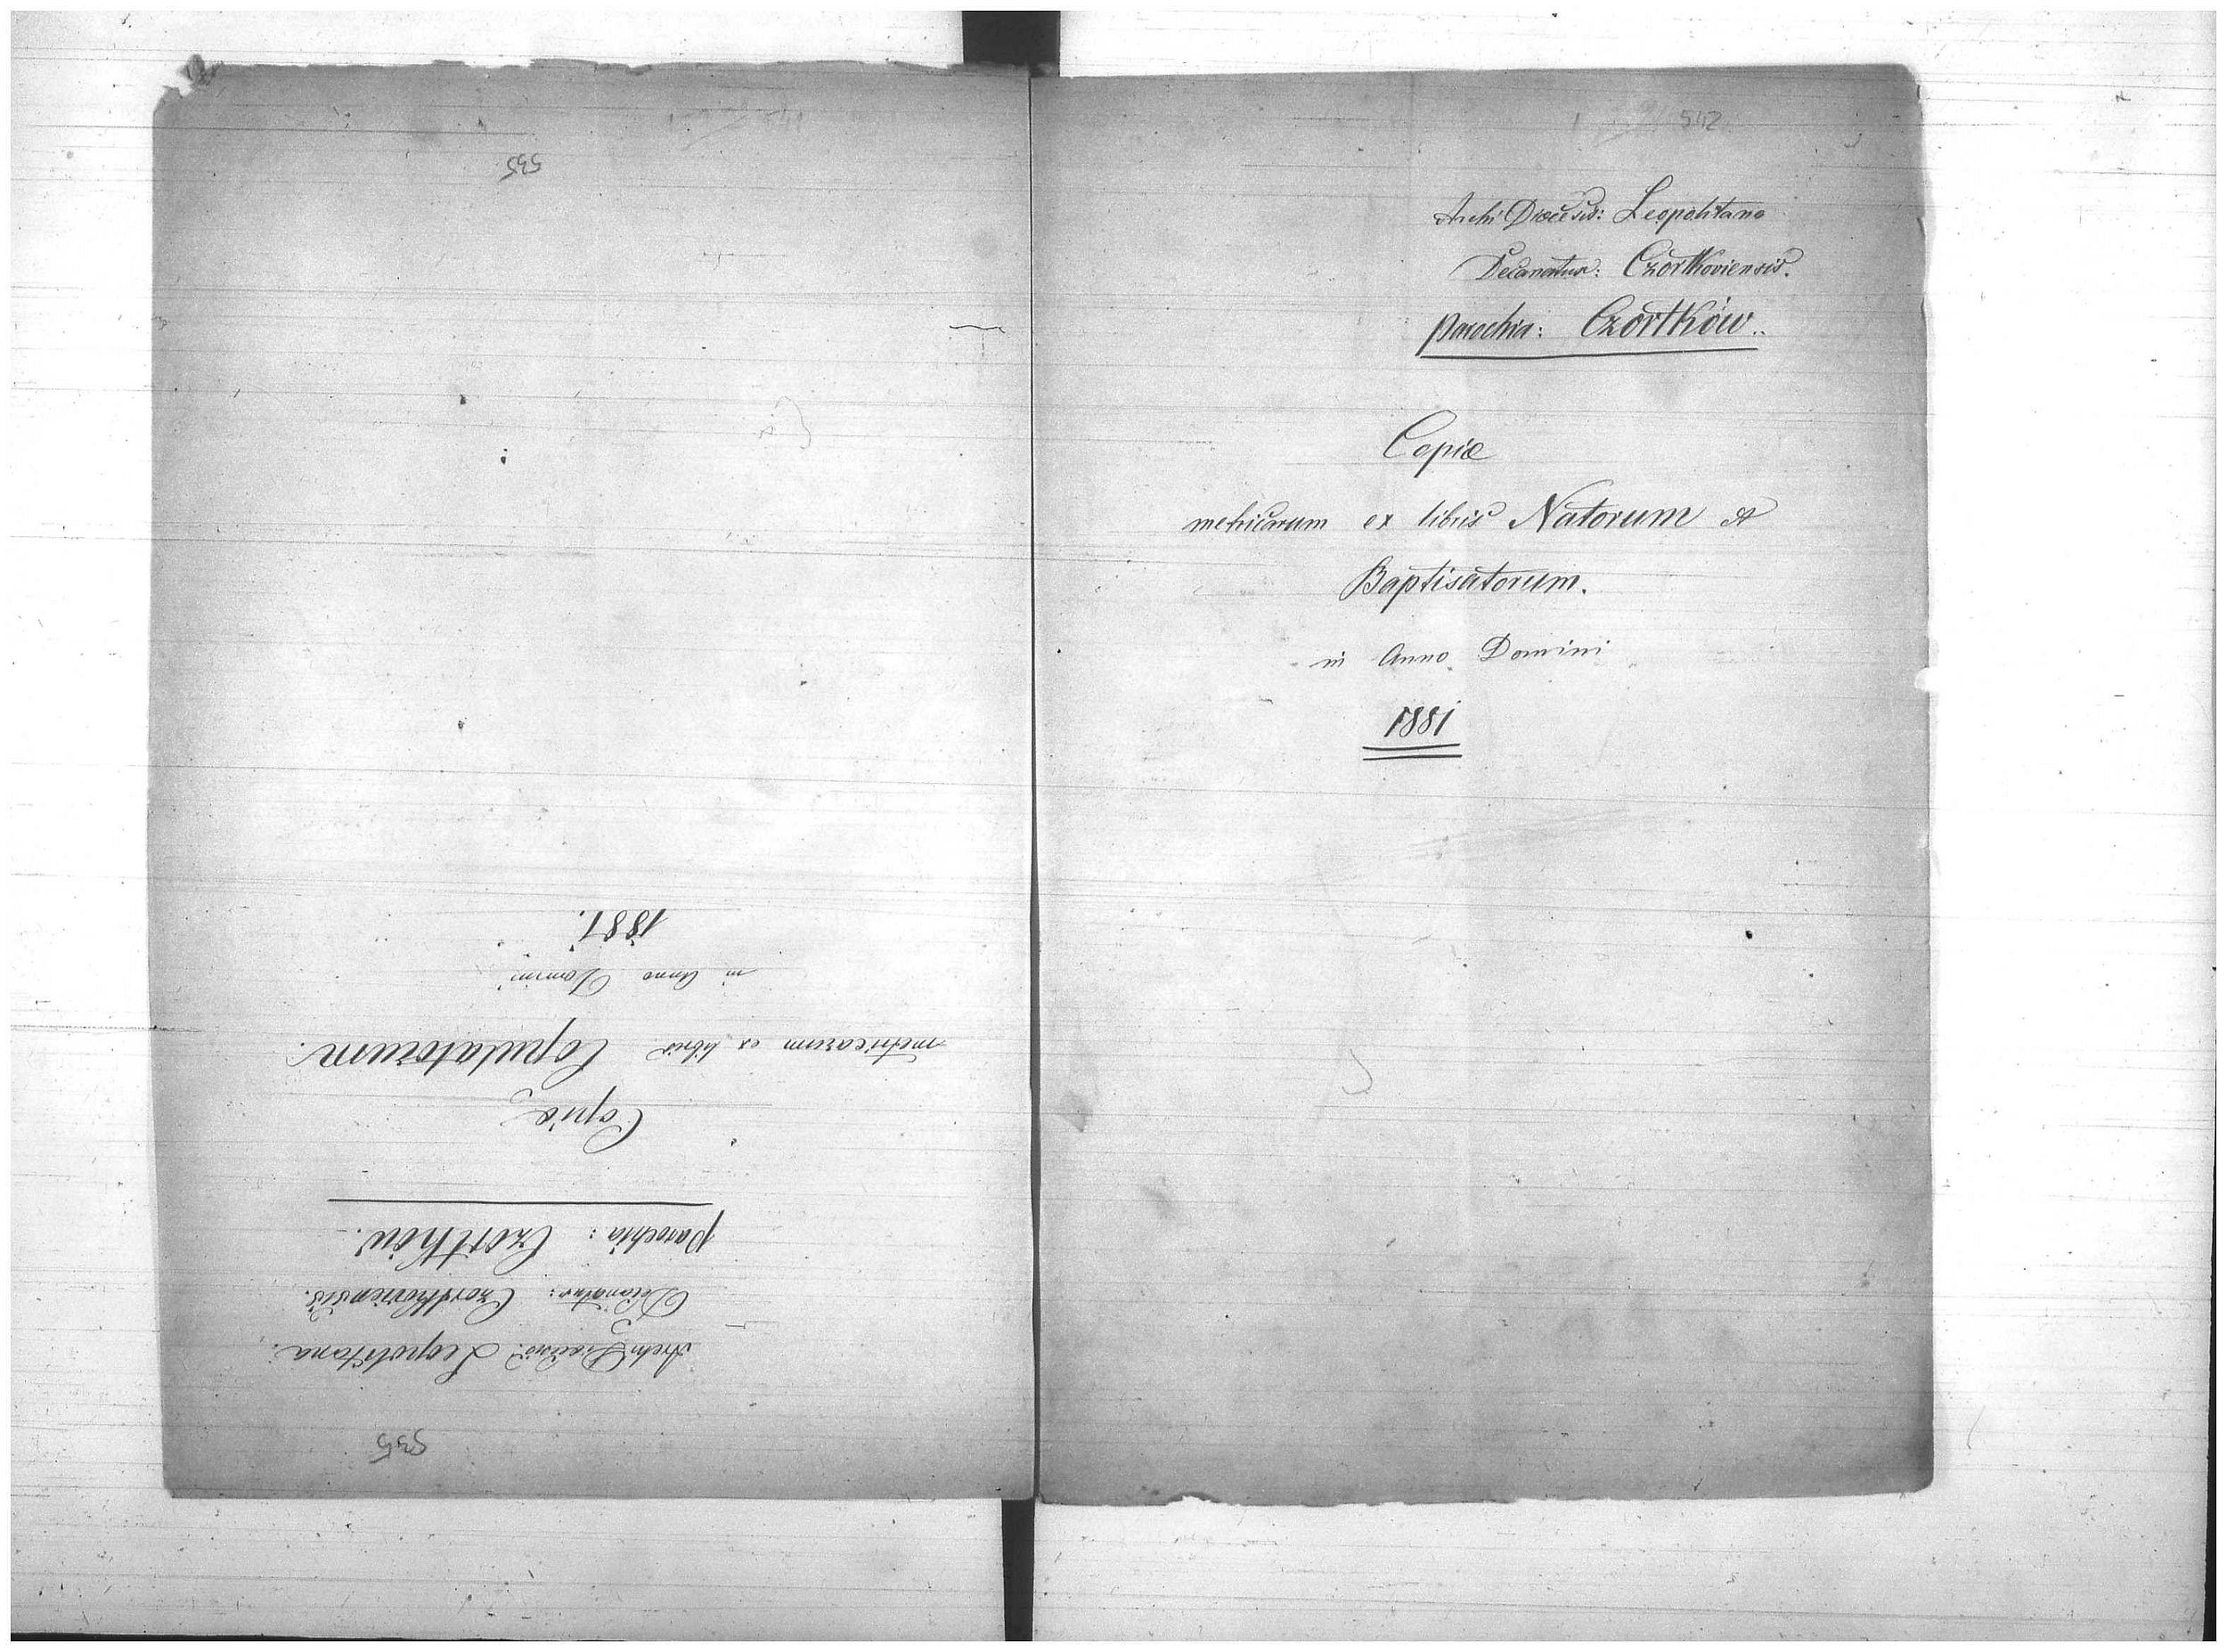 535
Archi Diœcesis: Leopolitana.
Decanatus: Czortkoviensis.
parochia: Czortków.
Copiæ
metricarum ex libris Copulatorum.
in Anno Domini
1881.
535
542
Archi Diœcesis: Leopolitana
Decanatus: Czortkoviensis.
parochia: Czortków..
Copiæ
metricarum ex libris Natorum et
Baptisatorum.
in Anno Domini
1881